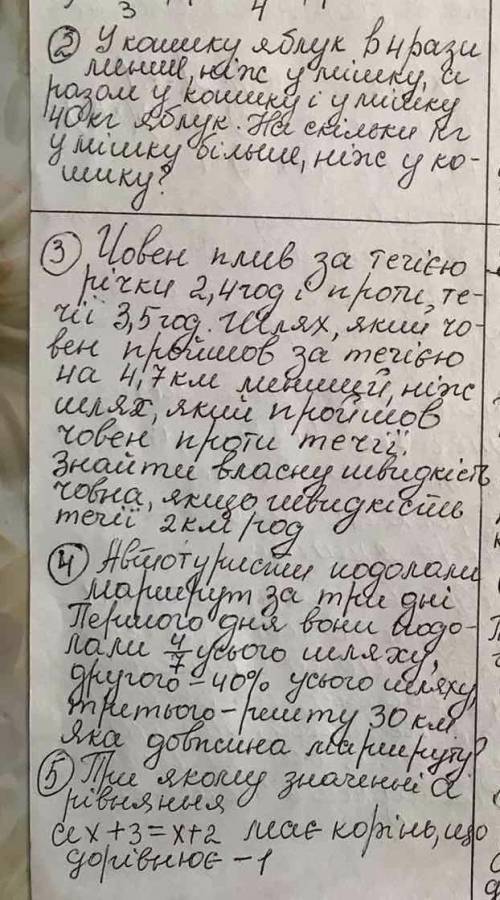 3 4
② У кошику яблук в 4 рази
менше, ніж у мішку, а
разом у кошику і у мішку
40кг яблук. На скільки кг
у мішку більше, ніж у ко-
шику?
③ Човен плив за течією
річки 2,4год і проти те-
чії 3,5год. Шлях, який чо-
вен пройшов за течією
на 4,7км менший, ніж
шлях, який пройшов
човен проти течії.
Знайти власну швидкість
човна, якщо швидкість
течії 2км/год
④ Автотуристи подолали
маршрут за три дні
Першого дня вони подо-
лали 4/7 усього шляху,
другого – 40% усього шляху,
третього – решту 30км
яка довжина маршруту?
⑤ При якому значенні a
рівняння
ax+3=x+2 має корінь, що
дорівнює –1